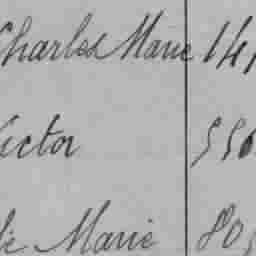 Charles Marie 141
Victor 556
lie Marie 805